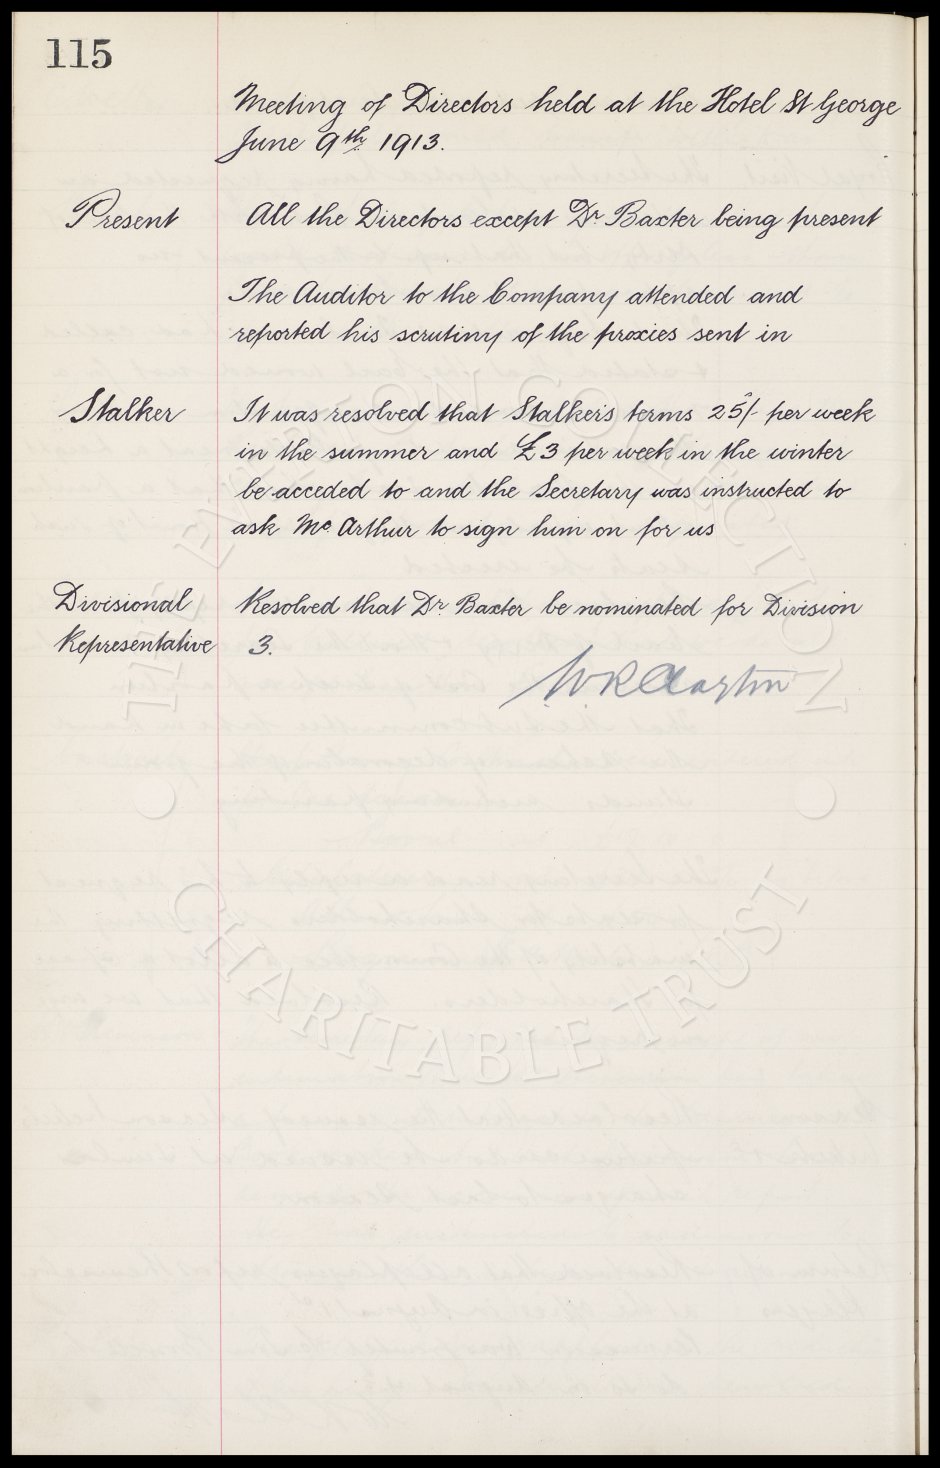 115
Meeting of Directors held at the Hotel St George
June 9th 1913.
Present All the Directors except Dr. Baxter being present
The Auditor to the Company attended and
reported his scrutiny of the proxies sent in
Stalker It was resolved that Stalker's terms 25/- per week
in the summer and £3 per week in the winter
be acceded to and the Secretary was instructed to
ask Mc Arthur to sign him on for us
Divisional Resolved that Dr. Baxter be nominated for Division
Representative 3.
W R Clayton
THE EVERTON COLLECTION
CHARITABLE TRUST